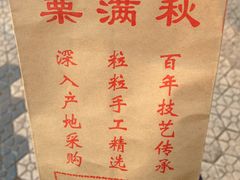 栗满秋
百年技艺传承
粒粒手工精选
深入产地采购